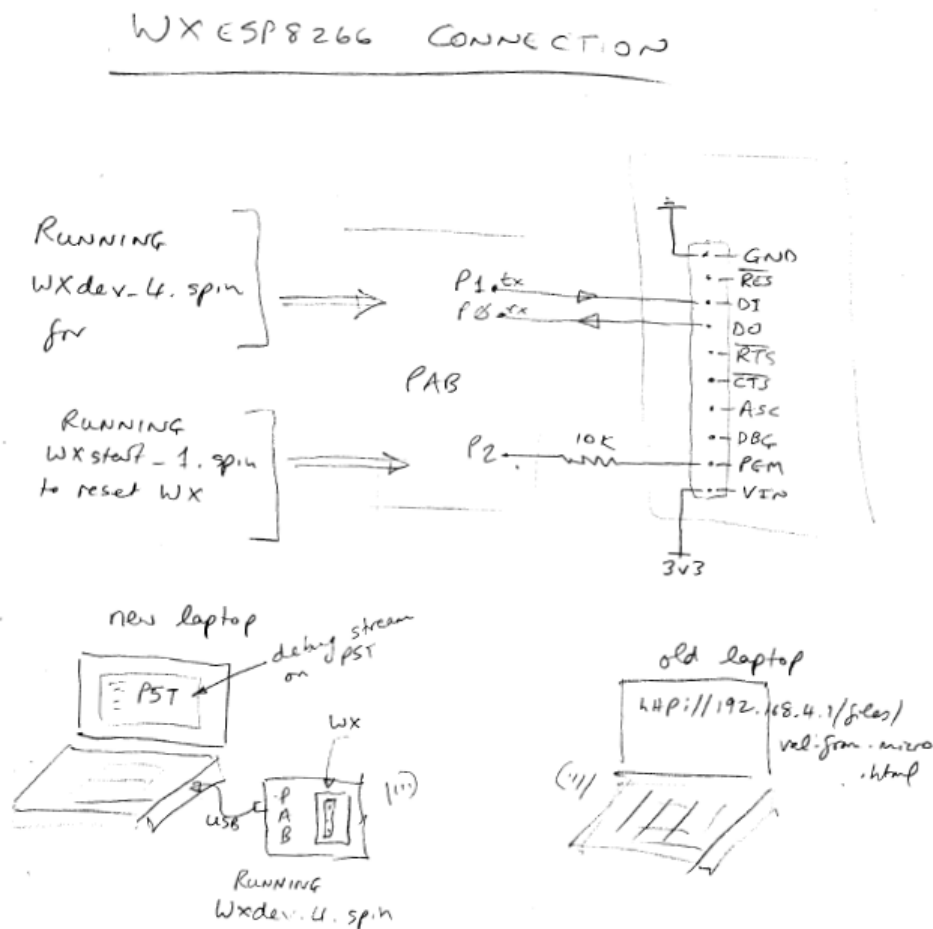 WX ESP8266 CONNECTION
RUNNING
WXdev_4.spin
for
P1 tx
P0 rx
PAB
RUNNING
WXstart_1.spin
to reset WX
P2
10K
GND
RES
DI
DO
RTS
CTS
ASC
DBG
PGM
VIN
3v3
new laptop
debug stream
on PST
PST
WX
USB
P
A
B
RUNNING
Wxdev_4.spin
old laptop
http://192.168.4.1/files/
val-from-micro
.html